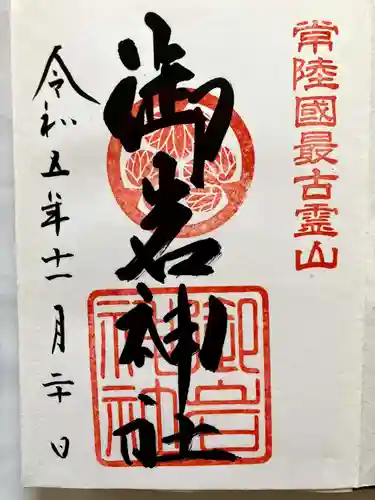 常陸國最古霊山
御岩神社
御岩神社
令和五年十一月二十日